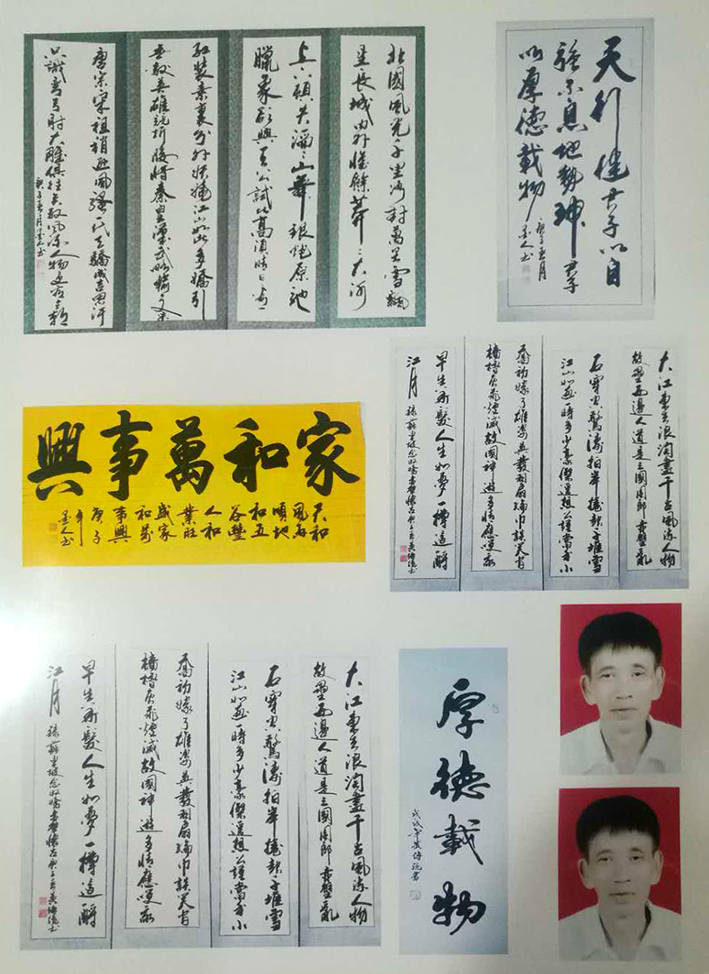 北國風光千里冰封萬里雪飄
望長城內外惟餘莽ミ大河
上下頓失滔ミ山舞銀蛇原馳
臘象欲與天公試比高須晴日看
紅裝素裹分外妖嬈江山如此多嬌引
無數英雄競折腰惜秦皇漢武略輸文采
唐宗宋祖稍遜風騷一代天驕成吉思汗
只識彎弓射大雕俱往矣數風流人物還看今朝
天行健君子以自
強不息地勢坤君子
以厚德載物
墨人書
家和萬事興
天和
風雨
順地
和五
谷豐
人和
業旺
盛家
和萬
事興
庚子
年
墨人書
大江東去浪淘盡千古風流人物
故壘西邊人道是三國周郎赤壁亂
石穿空驚濤拍岸捲起千堆雪
江山如畫一時多少豪傑遙想公瑾當年小
喬初嫁了雄姿英發羽扇綸巾談笑間
檣櫓灰飛煙滅故國神遊多情應笑我
早生華髮人生如夢一樽還酹
江月
錄蘇東坡念奴嬌赤壁懷古庚子年黃傳書
大江東去浪淘盡千古風流人物
故壘西邊人道是三國周郎赤壁亂
石穿空驚濤拍岸捲起千堆雪
江山如畫一時多少豪傑遙想公瑾當年小
喬初嫁了雄姿英發羽扇綸巾談笑間
檣櫓灰飛煙滅故國神遊多情應笑我
早生華髮人生如夢一樽還酹
江月
錄蘇東坡念奴嬌赤壁懷古庚子年黃傳書
厚德載物
戊戌年黃傳書